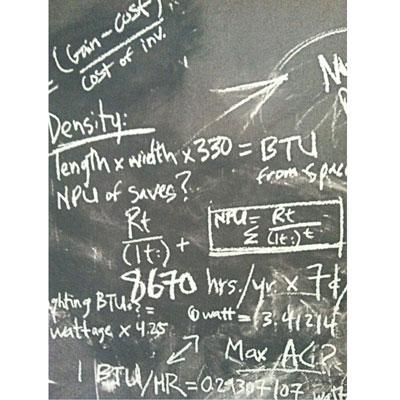 = (Gain - cost)
cost of inv.
Density:
length x width x 330 = BTU
from space
NPU of saves?
Rt
(1t:)t
NPU = Rt
Σ (1t:)t
8670 hrs./yr. x 7¢/
ghting BTUs? =
wattage x 4.25
1 watt = 3.41214
Max AGR
1 BTU/HR = 0.29307107 watt